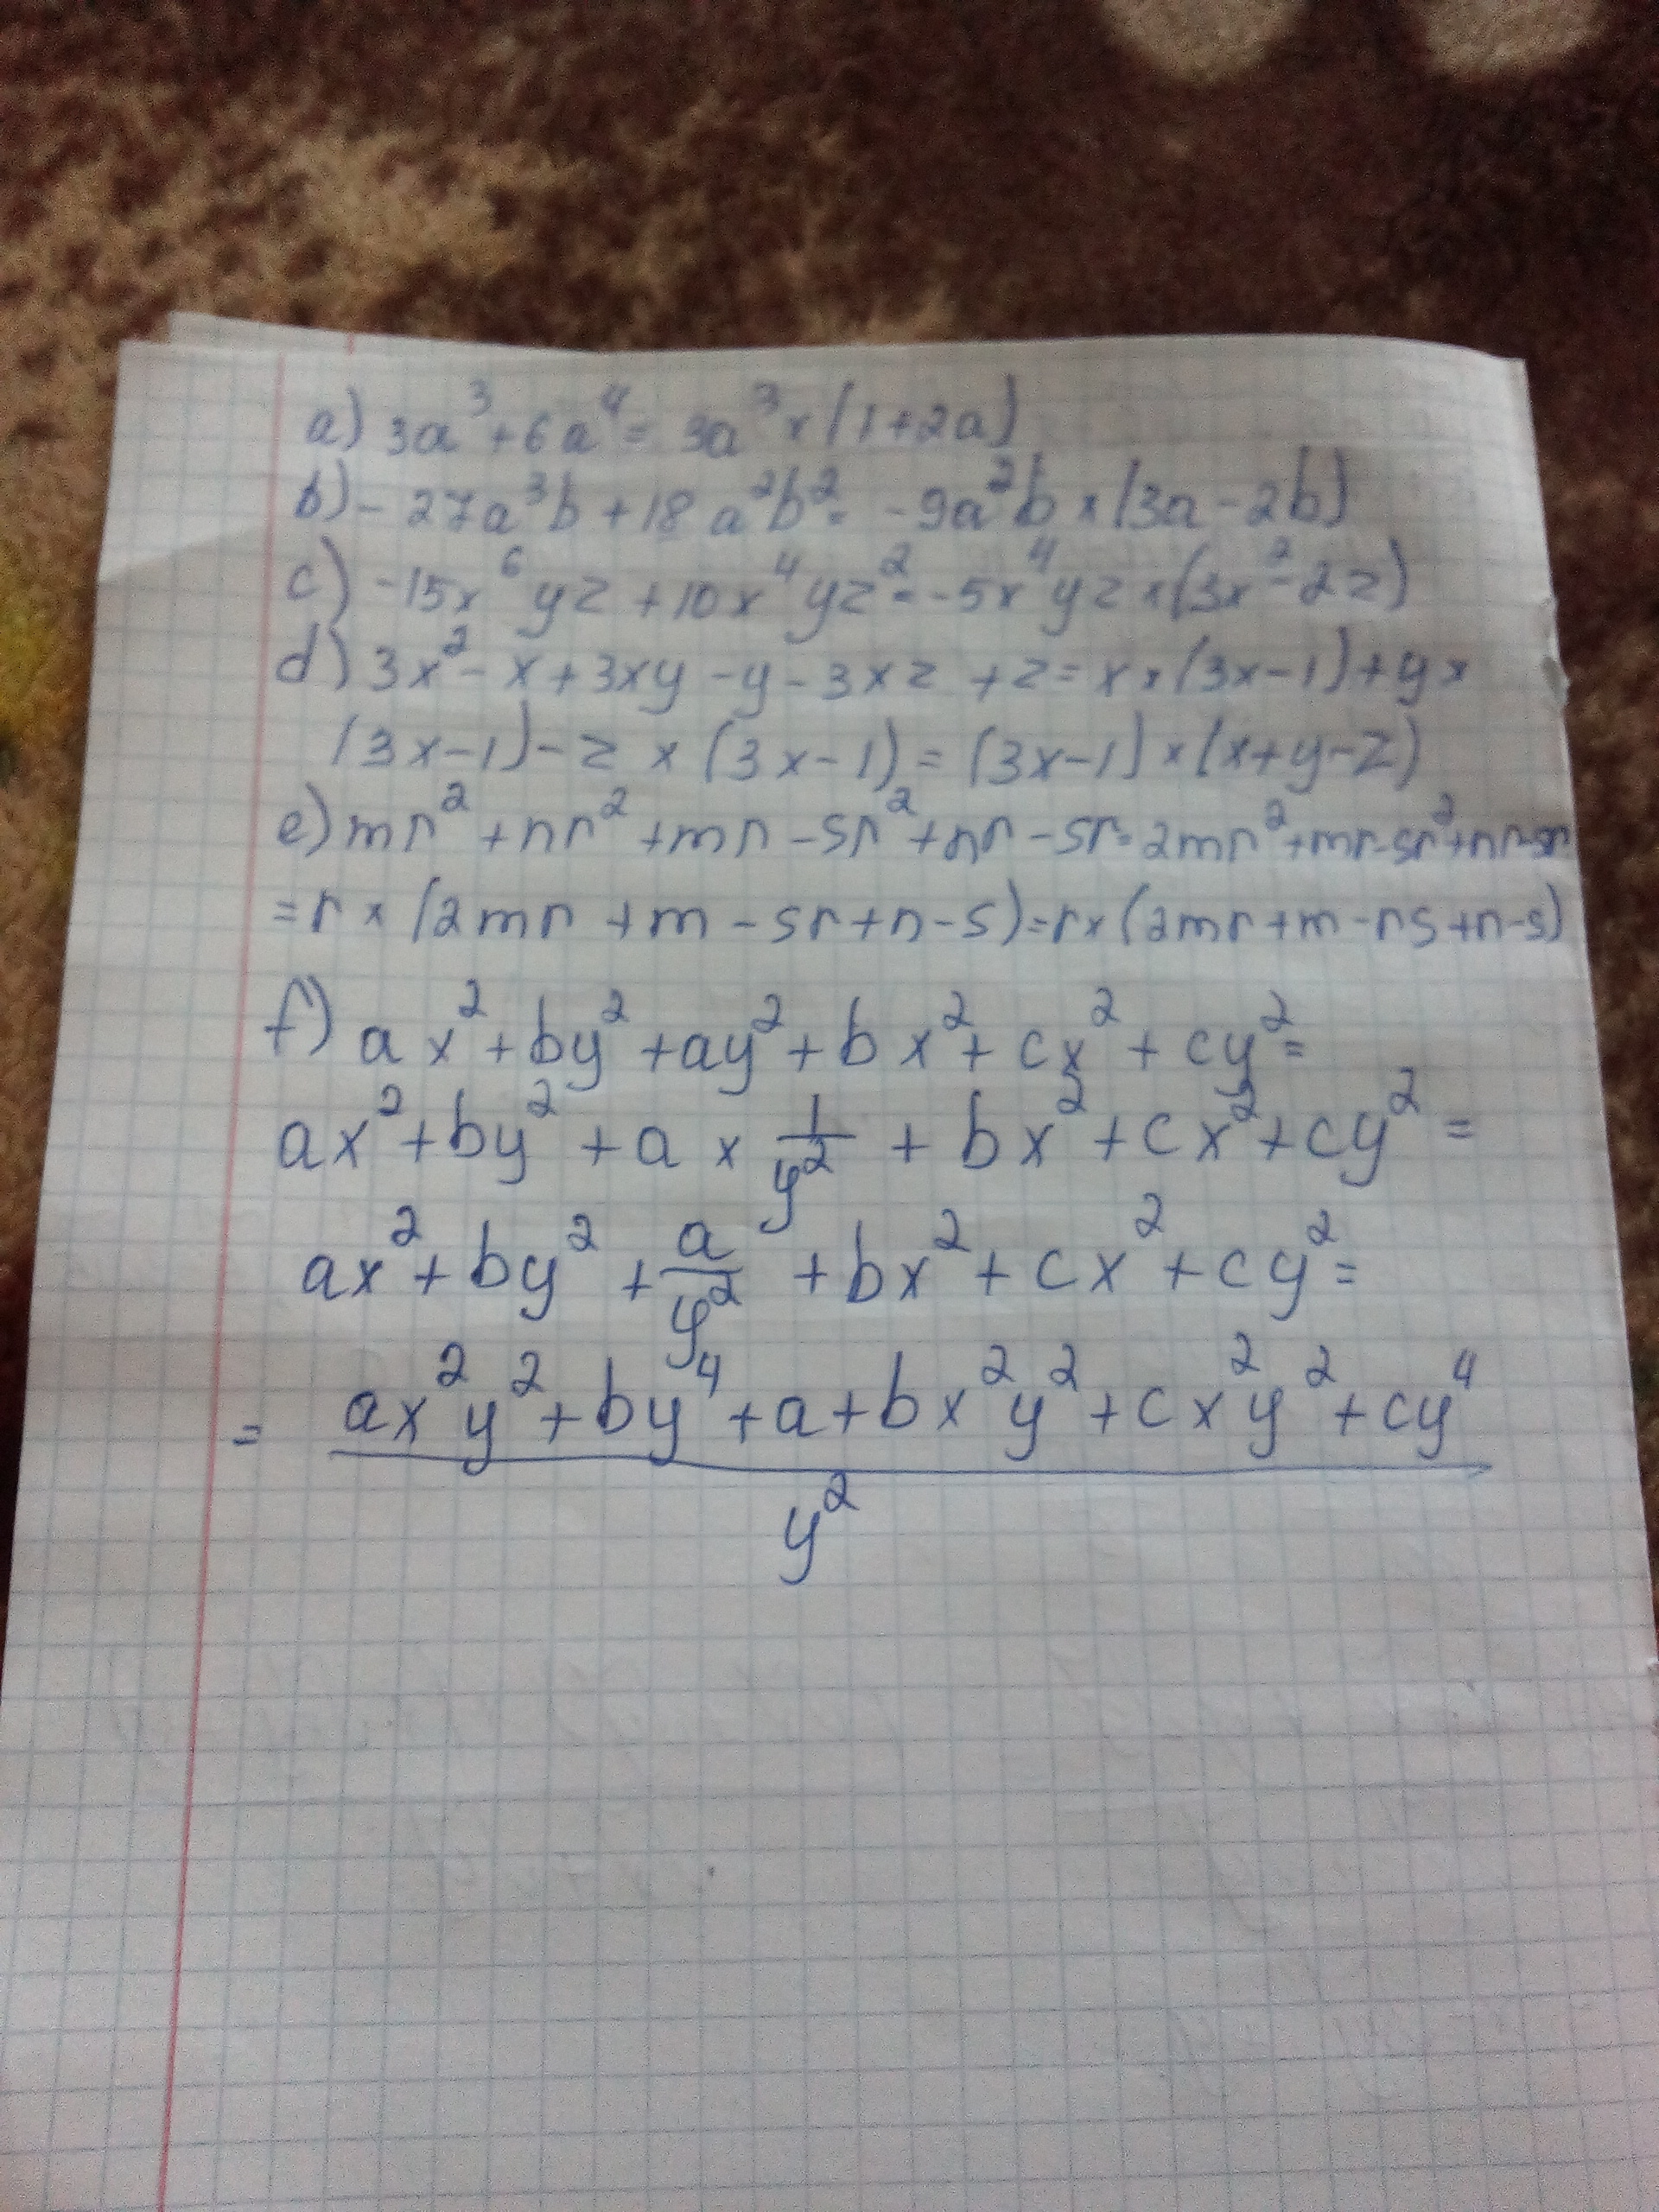 a) 3a³+6a⁴= 3a³×(1+2a)
b) -27a³b+18a²b²= -9a²b×(3a-2b)
c) -15x⁶yz+10x⁴yz²=-5x⁴yz×(3x²-2z)
d) 3x²-x+3xy-y-3xz+z=x×(3x-1)+y×
(3x-1)-z×(3x-1)=(3x-1)×(x+y-z)
e) mr²+nr²+mr-sr²+nr-sr=2mr²+mr-sr²+nr-sr
=r×(2mr+m-sr+n-s)=r×(2mr+m-rs+n-s)
f) ax²+by²+ay²+bx²+cx²+cy²=
ax²+by²+a×1/y²+bx²+cx²+cy²=
ax²+by²+a/y²+bx²+cx²+cy²=
= ax²y²+by⁴+a+bx²y²+cx²y²+cy⁴
y²